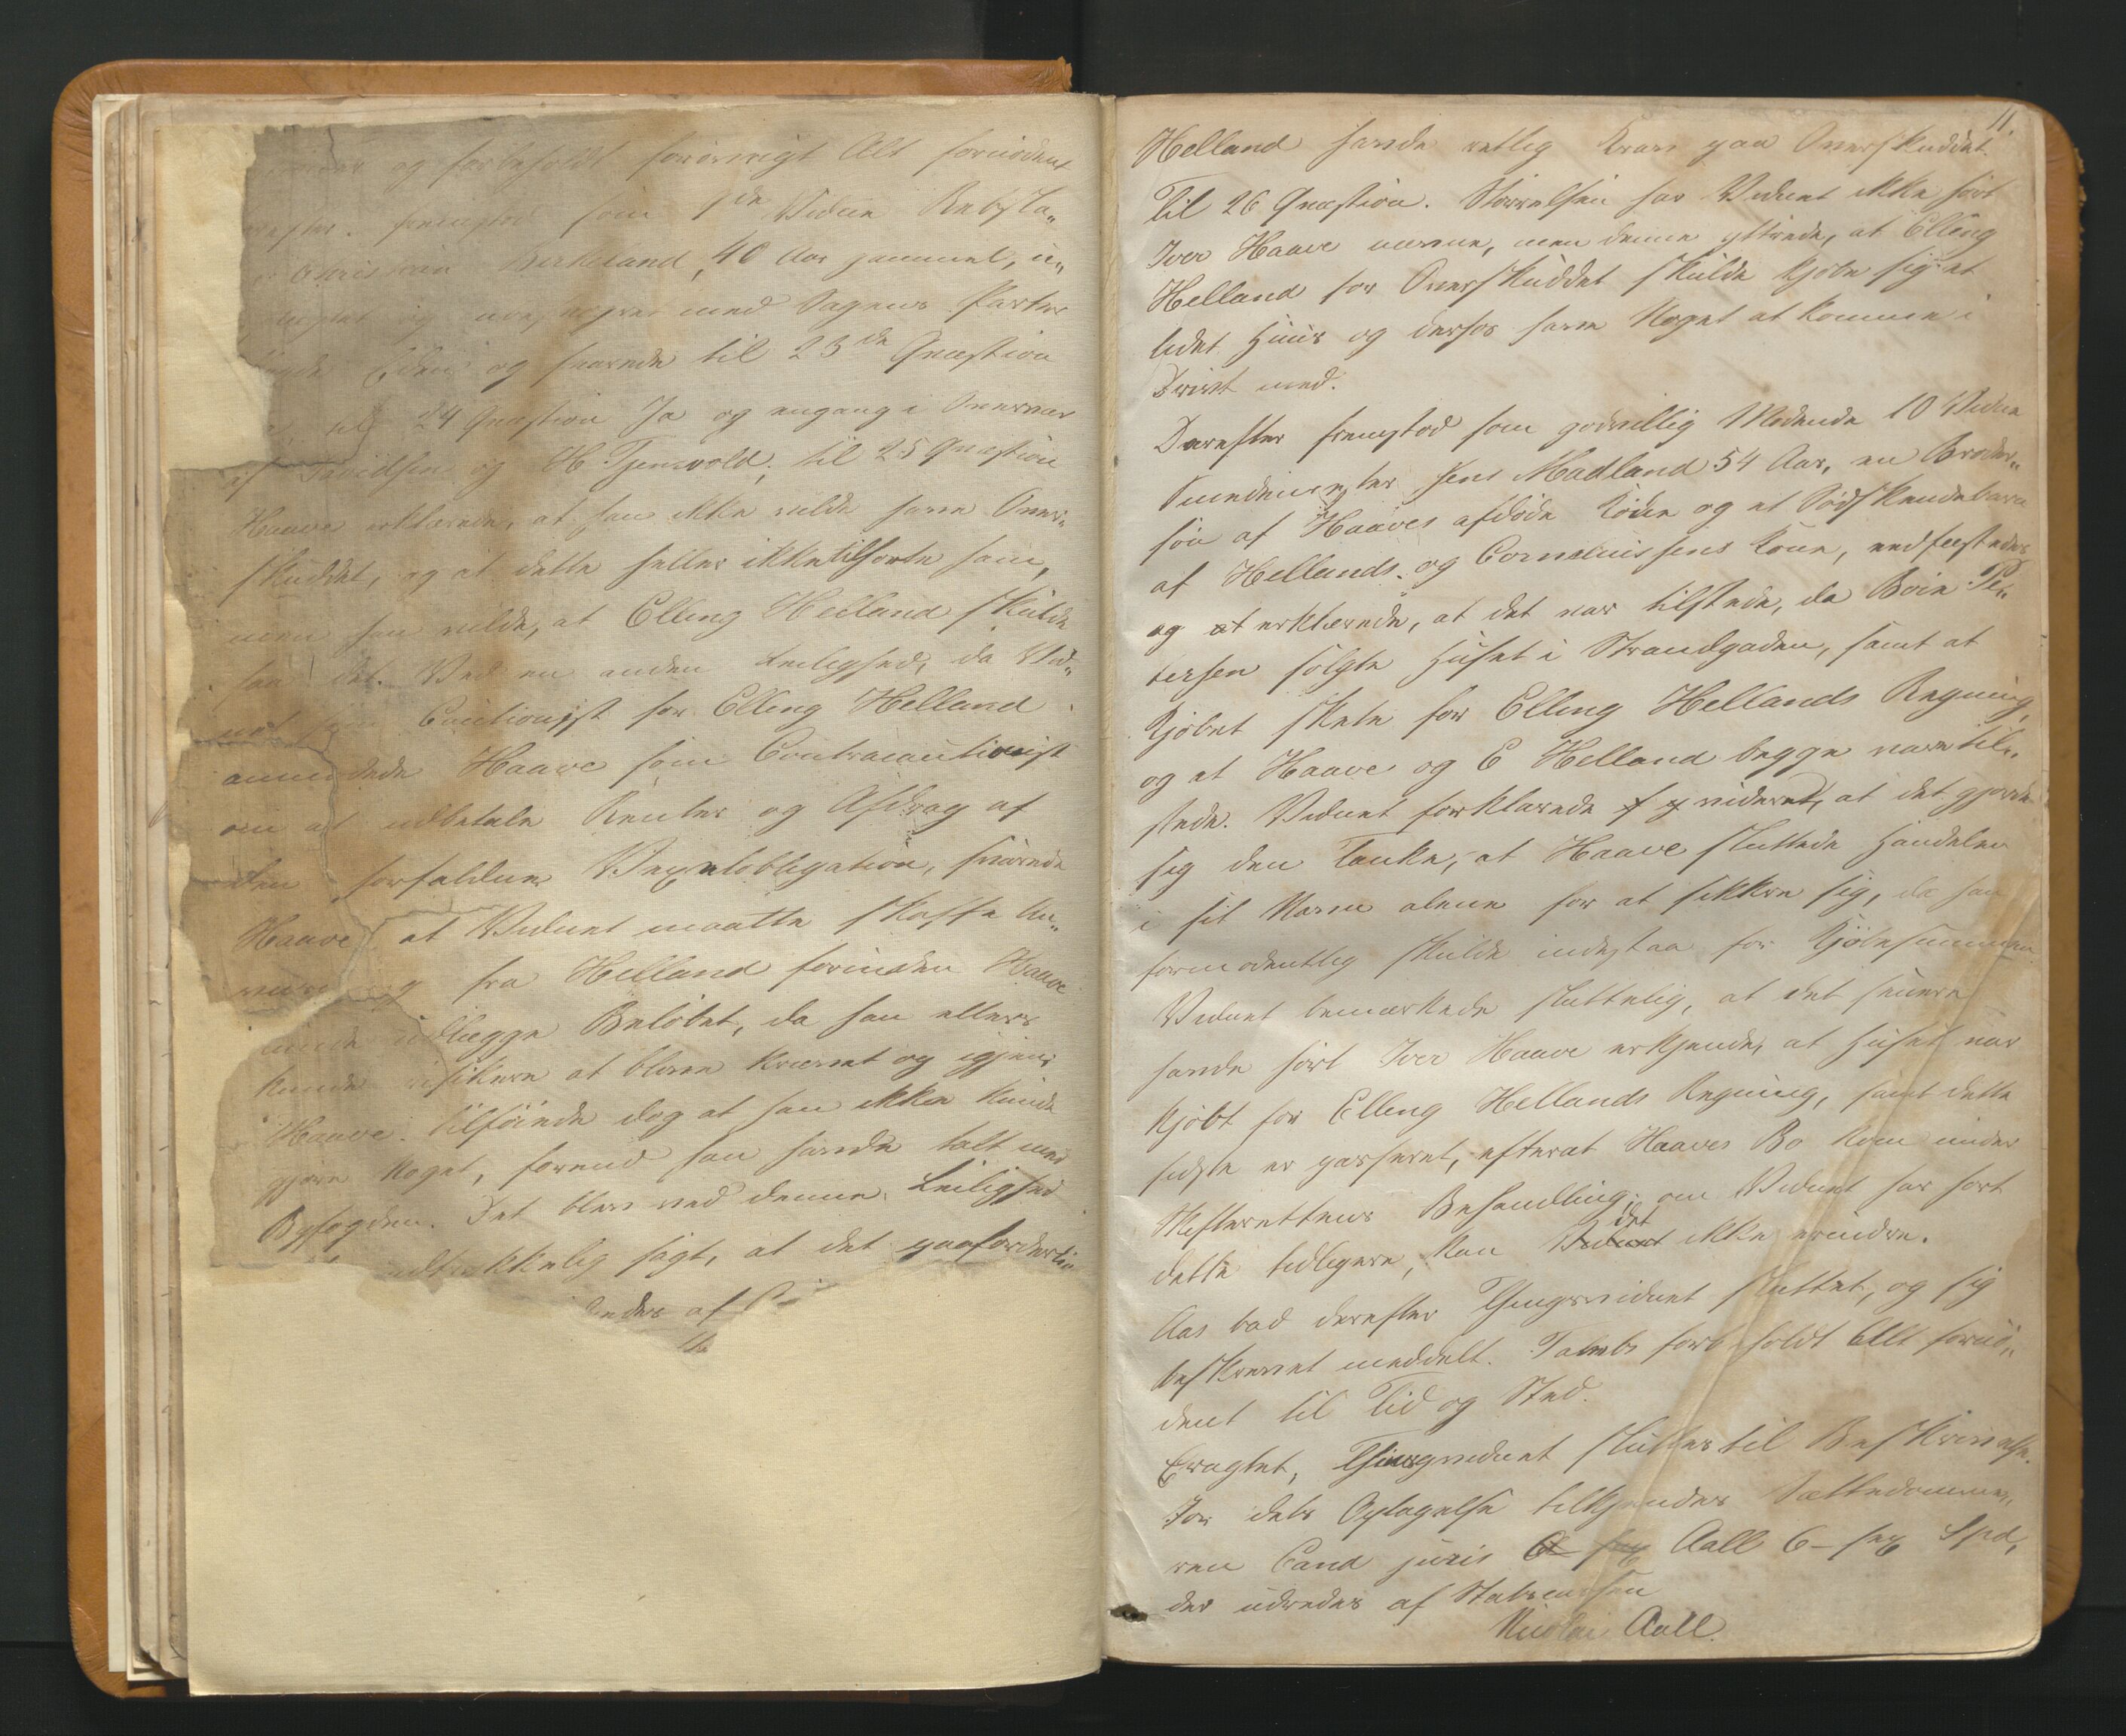 og forbeholdt forövrigt Alt fornödent
fremstod som 9de Vidne Rebsla„
Christian Birkeland, 40 Aar gammel, u„
og ubesvogret med Sagens Parter
Eden og svarede til 23de Qvæstion
til 24 Qvæstion Ja og engang i Overvær
af Davidsen og H. Tjensvold; til 25 Qvæstion
Haave erklærede, at han ikke vilde have Over„
skuddet, og at dette heller ikke tilhørte ham,
men han vilde, at Elling Helland skulde
faa det. Ved en anden Leilighed, da Vid„
net som Cautionist for Elling Helland
anmodede Haave som Contracautionist
om at udbetale Renter og Afdrag af
den forfaldne Vexelobligation, svarede
Haave, at Vidnet maatte skaffe An„
viisning fra Helland forinden Haave
kunde udlægge Belöbet, da han ellers
kunde risikere at blive krævet og igjen
Haave tilföiede dog at han ikke kunde
gjøre Noget, forend han havde talt med
Byfogden. Det blev ved denne Leilighed
udtrykkelig sagt, at det paafordredes
af
11.
Helland havde retlig Krav paa Overskuddet.
Til 26 Qvæstion. Störrelsen har Vidnet ikke hört
Iver Haave nævne, men denne yttrede, at Elling
Helland for Overskuddet skulde kjöbe sig et
lidet Huus og derfor have Noget at komme i
Drivt med.
Derefter fremstod som godvillig Mödende 10 Vidne
Smedemester Jens Madland 54 Aar, en Broder„
sön af Haaves afdöde Kone og et Södskendebarn
af Hellands og Corneliussens Kone, edfæstedes
og at erklærede, at det var tilstede, da Boie Pe„
tersen solgte Huset i Strandgaden, samt at
Kjöbet skete for Elling Hellands Regning,
og at Haave og E Helland begge vare til„
stede. Vidnet forklarede videre, at det gjorde
sig den Tanke, at Haave sluttede Handelen
i sit Navn alene for at sikkre sig, da han
formodentlig skulde indestaa for Kjöbesummen.
Vidnet bemærkede sluttelig, at det senere
havde hört Iver Haave erkjende, at Huset var
kjöbt for Elling Hellands Regning, samt dette
sidste er passeret, efterat Haaves Bo kom under
Skifterettens Behandling; om Vidnet har hört
dette tidligere, kan Vidnet det ikke erindre.
Aas bad derefter Thingsvidnet sluttet, og sig
beskrevet meddelt. Talmbs forbeholdt Alt fornö„
dent til Tid og Sted.
Eragtet, Thingsvidnet sluttes til Beskrivelse.
For dets Optagelse tilkjendes Sættedomme„
ren Cand juris Aall 6 – sex Spd,
der udredes af Statscassen
Nicolai Aall.